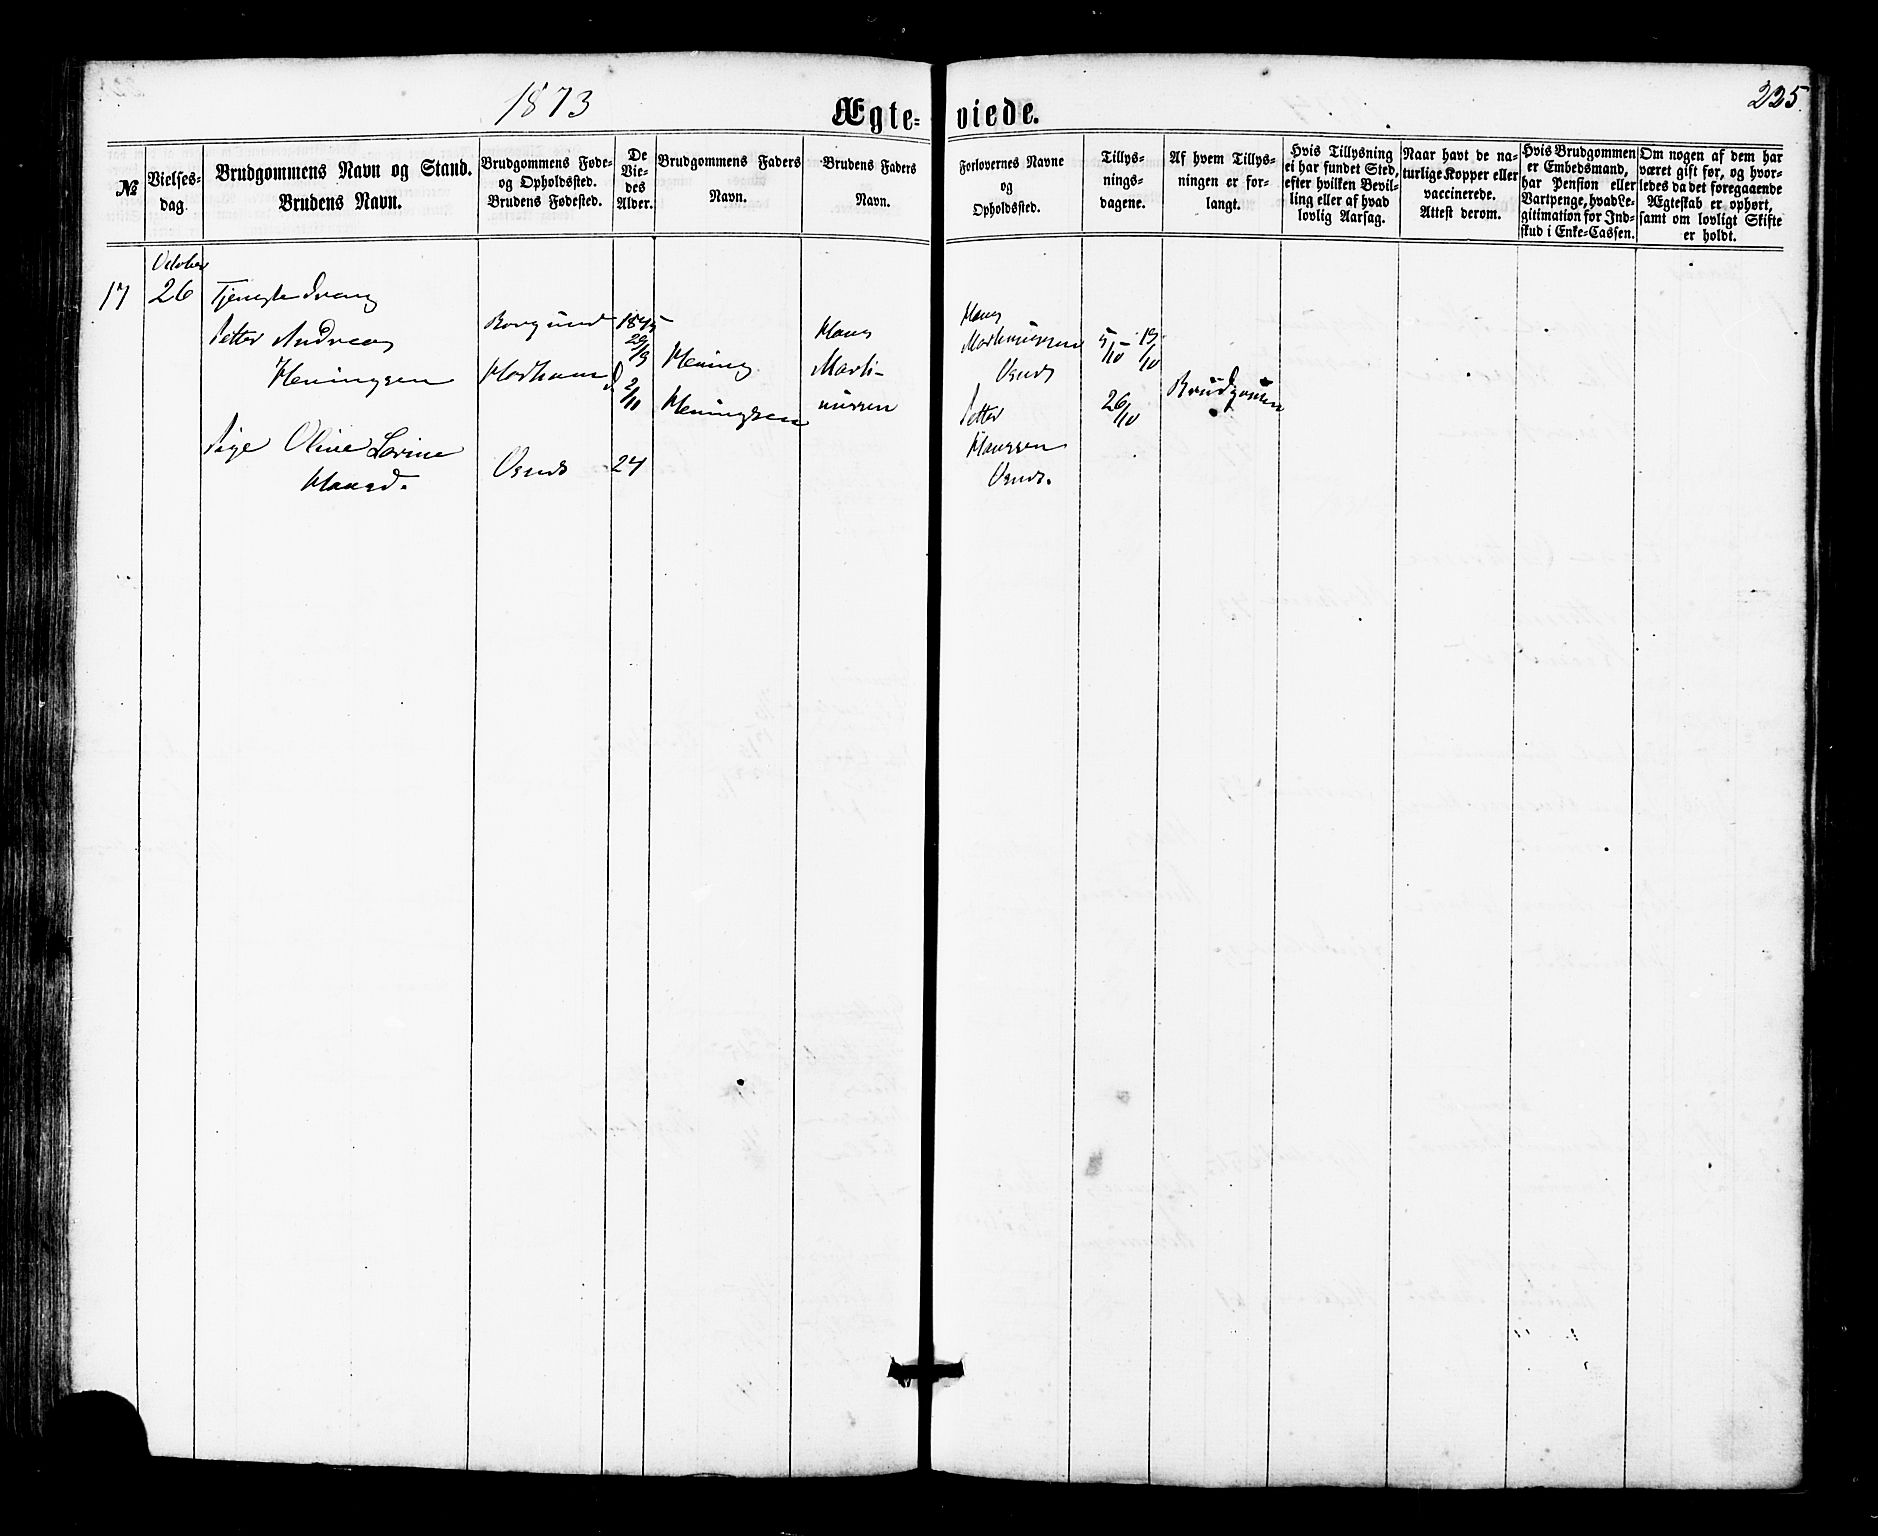 1873
Ægte-viede.
225.
№
Vielses-
dag.
Brudgommens Navn og Stand.
Brudens Navn.
Brudgommens Føde-
og Opholdssted.
Brudens Fødested.
De
Vie-
des
Alder.
Brudgommens Faders
Navn.
Brudens Faders
Navn.
Forlovernes Navne
og
Opholdssted.
Tillys-
nings-
dagene.
Af hvem Tillys-
ningen er for-
langt.
Hvis Tillysning
ei har fundet Sted,
efter hvilken Bevil-
ling eller af hvad
lovlig Aarsag.
Naar havt de na-
turlige Kopper eller
vaccinerede.
Attest derom.
Hvis Brudgommen
er Embedsmand,
har Pension eller
Vartpenge, hvad Le-
gitimation for Ind-
skud i Enke-Cassen.
Om nogen af dem har
været gift før, og hvor-
ledes da det foregaaende
Ægteskab er ophørt,
samt om lovligt Skifte
er holdt.
17
October
26
Tjenestedreng
Petter Andreas
Heningsen
Pige Oline Lovine
Hansd.
Borgund
1845
Hening
Heningsen
24
Hans
Marti-
nussen
Hans
Martinussen
Petter
Hanssen
5/10
19/10
26/10
Brudgommen